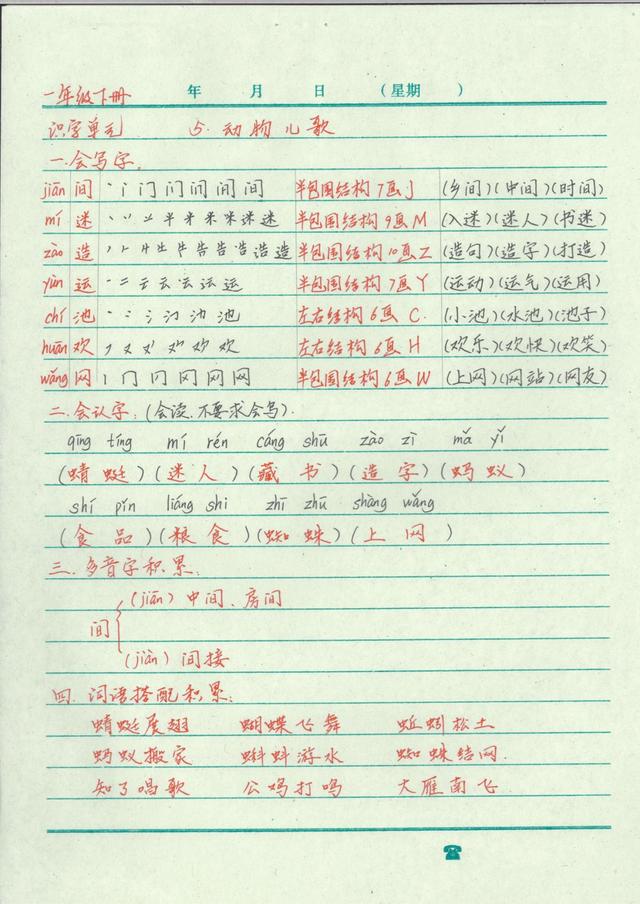 一年级下册 年 月 日 (星期 )
识字单元 5.动物儿歌
一.会写字.
jiān 间 门 间 半包围结构7画J (乡间)(中间)(时间)
mí 迷 半 米 迷 半包围结构9画M (入迷)(迷人)(书迷)
zào 造 牛 告 造 半包围结构10画Z (造句)(造字)(打造)
yùn 运 二 云 运 半包围结构7画Y (运动)(运气)(运用)
chí 池 氵 池 左右结构6画C. (小池)(水池)(池子)
huān 欢 又 欢 左右结构6画H (欢乐)(欢快)(欢笑)
wǎng 网 冂 网 半包围结构6画W (上网)(网站)(网友)
二.会认字:(会读.不要求会写).
qīng tíng mí rén cáng shū zào zì mǎ yǐ
(蜻蜓)(迷人)(藏书)(造字)(蚂蚁)
shí pǐn liáng shi zhī zhū shàng wǎng
(食品)(粮食)(蜘蛛)(上网)
三.多音字积累:
(jiān)中间、房间
间
(jiàn)间接
四.词语搭配积累:
蜻蜓展翅 蝴蝶飞舞 蚯蚓松土
蚂蚁搬家 蝌蚪游水 蜘蛛结网.
知了唱歌 公鸡打鸣 大雁南飞